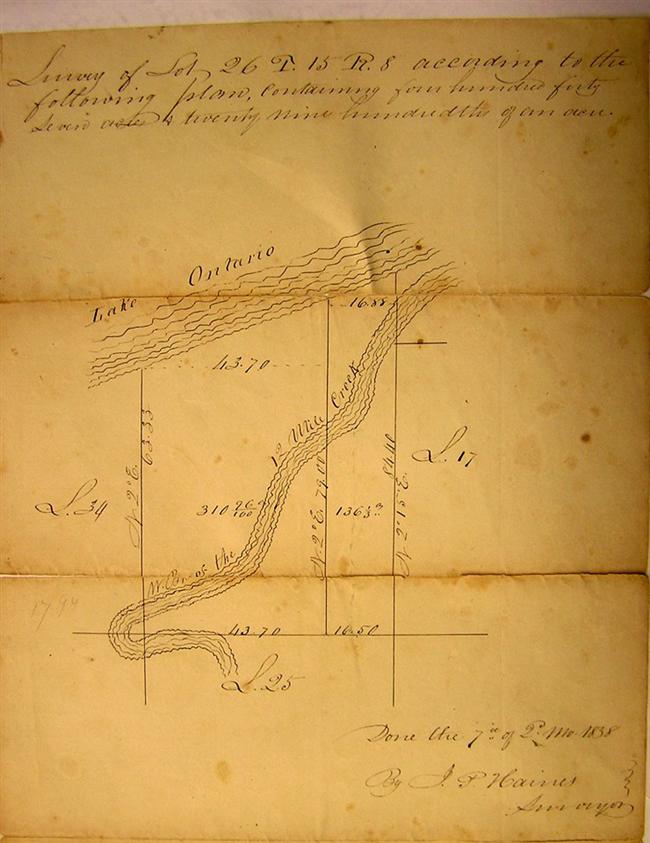 Survey of Lot 26 T. 15 R. 8 according to the
following plan, containing four hundred fifty
seven acres & twenty nine hundredths of an acre.
Lake Ontario
16.88
43.70
12 Mile Creek
N. 2° E. 63.33
N. 2° E. 79.00
N 2° 15' E. 84.40
L. 17
L. 34
310 26/100
136
W. Br. of the
1794
43.70
16.50
L. 25
Done the 7th of 2d Mo 1838
By J. P. Haines
Surveyor